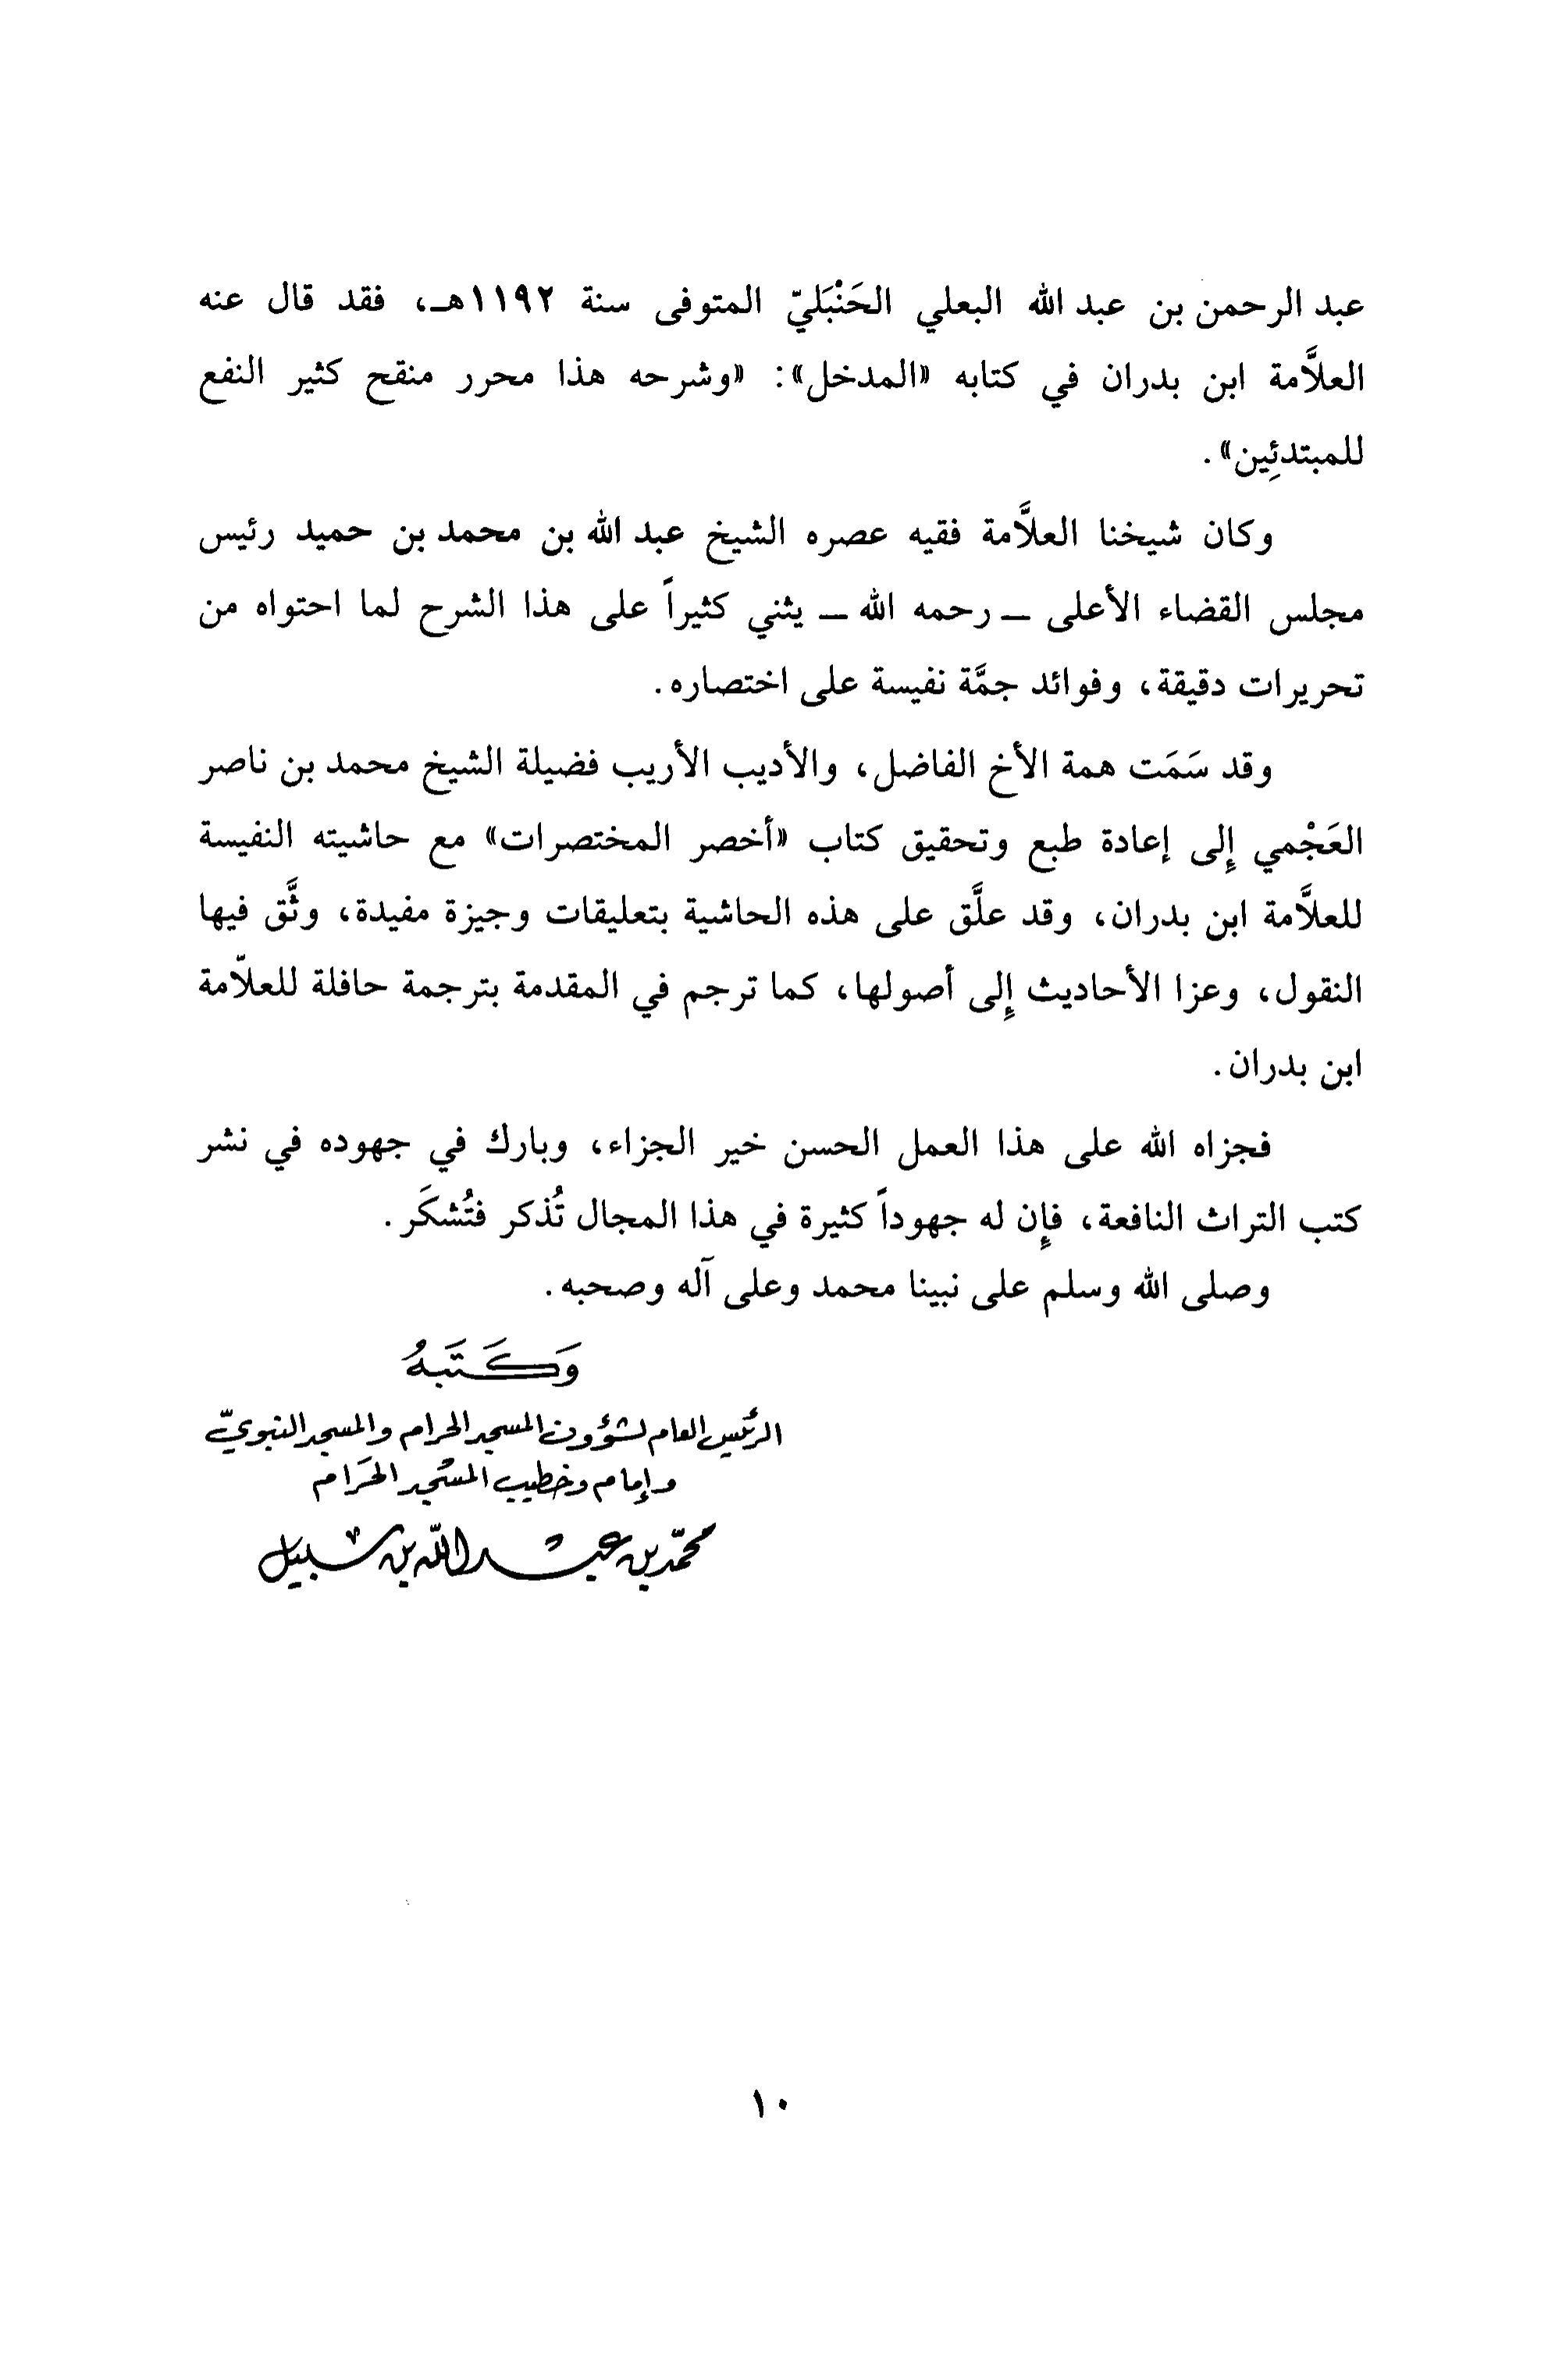 عبد الرحمن بن عبد الله البعلي الحَنْبَليّ المتوفى سنة ١١٩٢هـ، فقد قال عنه
العلاَّمة ابن بدران في كتابه «المدخل»: «وشرحه هذا محرر منقح كثير النفع
للمبتدئِين».
وكان شيخنا العلاَّمة فقيه عصره الشيخ عبد الله بن محمد بن حميد رئيس
مجلس القضاء الأعلى ــ رحمه الله ــ يثني كثيراً على هذا الشرح لما احتواه من
تحريرات دقيقة، وفوائد جمَّة نفيسة على اختصاره.
وقد سَمَت همة الأخ الفاضل، والأديب الأريب فضيلة الشيخ محمد بن ناصر
العَجْمي إِلى إعادة طبع وتحقيق كتاب «أخصر المختصرات» مع حاشيته النفيسة
للعلاَّمة ابن بدران، وقد علَّق على هذه الحاشية بتعليقات وجيزة مفيدة، وثَّق فيها
النقول، وعزا الأحاديث إِلى أصولها، كما ترجم في المقدمة بترجمة حافلة للعلاّمة
ابن بدران.
فجزاه الله على هذا العمل الحسن خير الجزاء، وبارك في جهوده في نشر
كتب التراث النافعة، فإِن له جهوداً كثيرة في هذا المجال تُذكر فتُشكَر.
وصلى الله وسلم على نبينا محمد وعلى آله وصحبه.
وَكَتَبهُ
الرئيس العام لشؤون المسجد الحرام والمسجد النبويّ
وإمام وخطيب المسْجد الحَرام
محمّد بن عبد اللّه بن سبيل
١٠